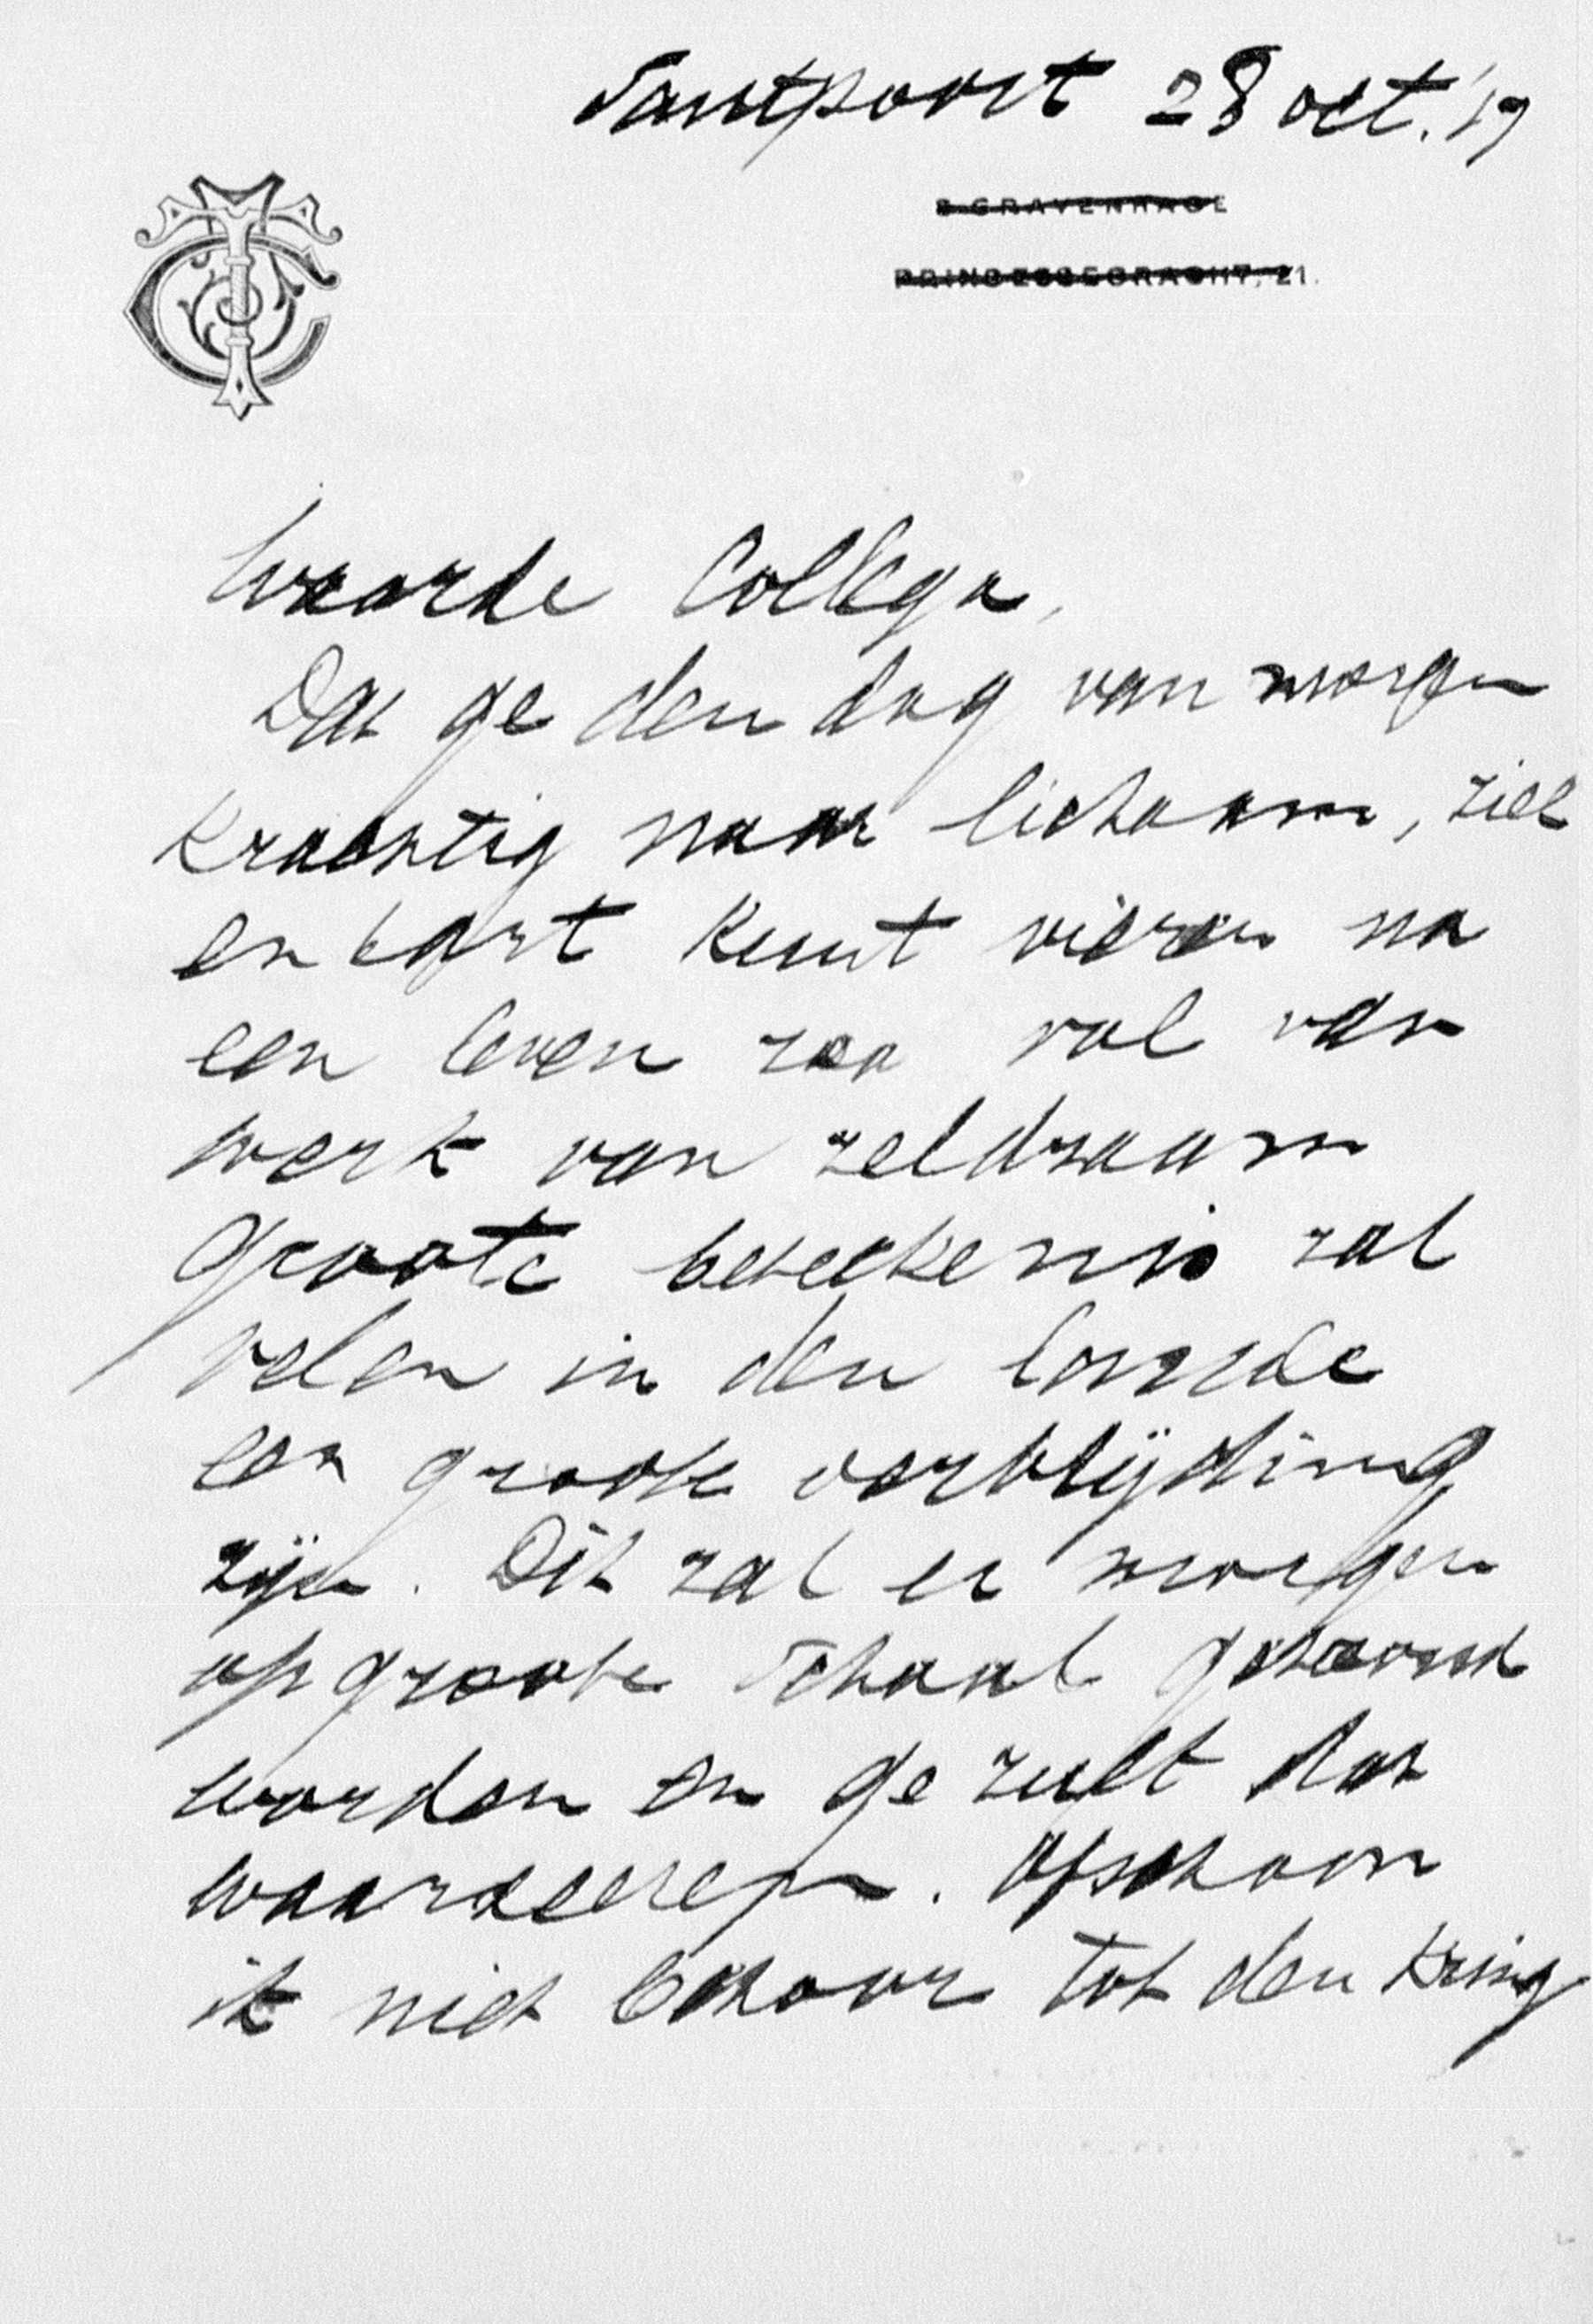 Santpoort 28 oct. '19
'S GRAVENHAGE
PRINCESSEGRACHT, 21.
Waarde Collega,
Dat ge den dag van morgen
krachtig naar lichaam, ziel
en hart kunt vieren na
een leven zoo vol van
werk van zeldzaam
groote beteekenis zal
velen in den lande
een groote verblijding
zijn. Dit zal er morgen
op groote schaal getoond
worden en ge zult dat
waardeeren. Ofschoon
ik niet behoor tot den kring